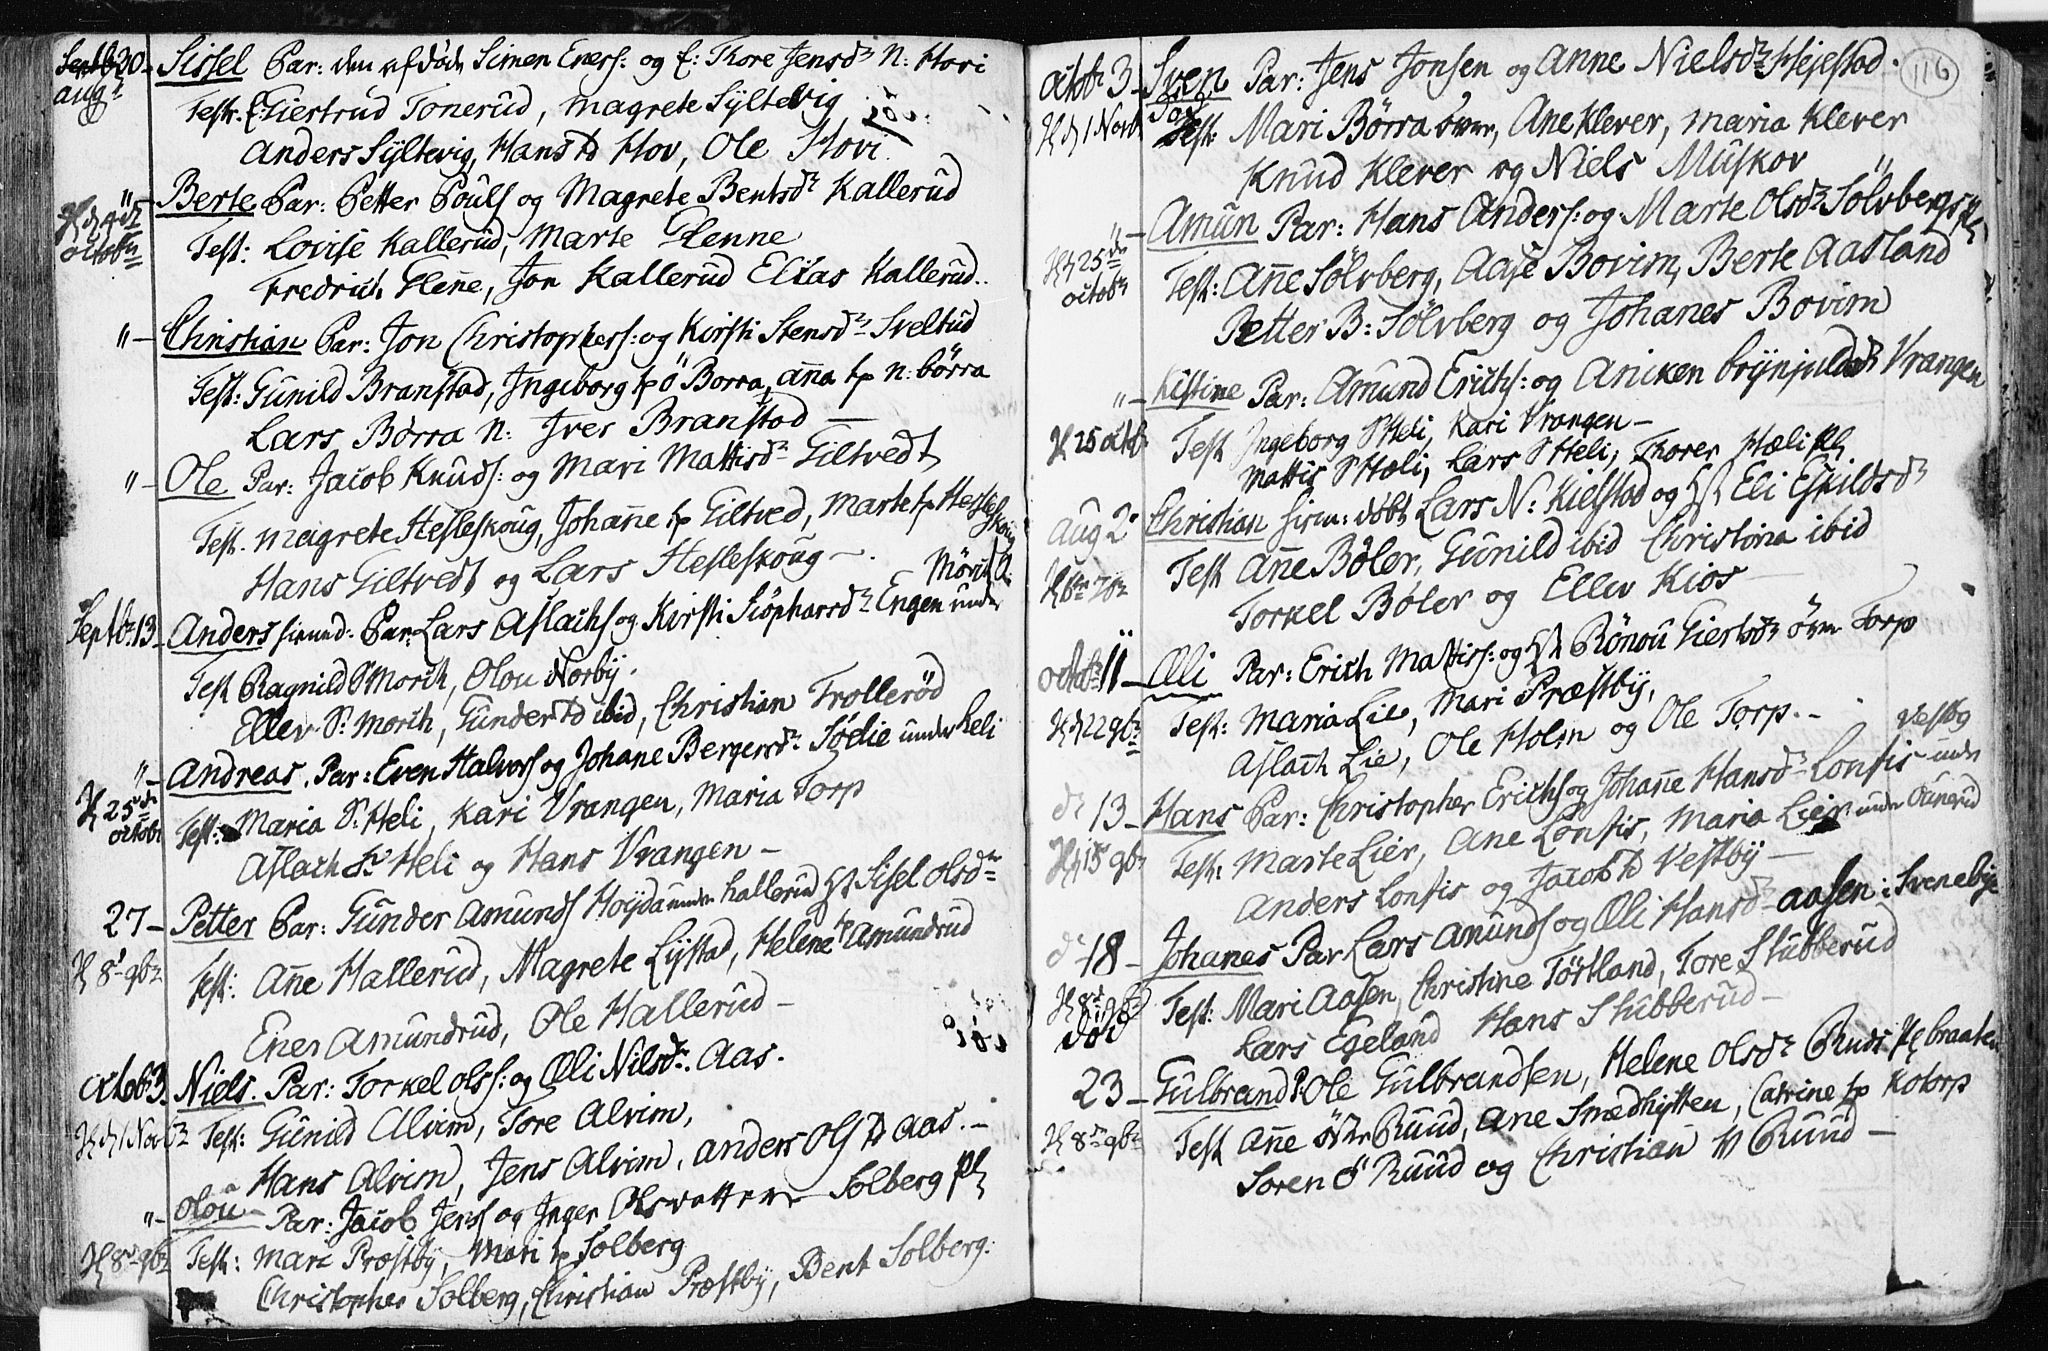 30 Sissel Par: den afdöde Simen Eners: og E: Thore Jensdr N: Hovi
aug
Test: E: Giertrud Tonerud, Magrete Syltevig
Anders Syltevig, Hans Hov, Ole Hovi.
" Berte Par: Petter Pouls og Magrete Bentsdr Kallerud
octobr
Test: Lovise Kallerud, Marte Glenne
Fredrich Glene, Jon Kallerud Elias Kallerud..
" - Christian Par: Jon Christophers: og Kirsti Stensdr Sveltud
Test: Gunild Branstad, Ingeborg tp ö Borra, anna tp n: börra
Lars Börra N: Iver Branstad -
" - Ole Par: Jacob Knuds: og Mari Mattisdr Giltvedt
Test. Magrete Hesleskoug, Johane tp Giltved, Marte tp Hesleskoug
Hans Giltvedt og Lars Hesleskoug -.
Septbr. 13 - Anders Par: Lars Aslachs og Kirsti Engen under
Test Ragnild S Morch, Olou Norby.
Ellev S. Morch, Gunder ibid, Christian Trolleröd
" - Andreas. Par: Even Halvors og Johane Bergersdr Södlie under heli
25de
octobr
Test: Maria S. Heli, Kari Vrangen, Maria Torp
Aslach S. Heli og Hans Vrangen -
27 - Petter Par: Gunder Amunds Höyda under hallerud Sisel Olsdr
8de 9br
Test: Ane Hallerud, Magrete Lystad, Helene Amundrud
Ener Amundrud, Ole Hallerud -
octob 3. Niels. Par: Torkel Ols: og Æli Nilsdr. Aas.
1 Novbr Test: Gunild Alvim, Tore Alvim,
Hans Alvim, Jens Alvim, anders Ols Aas. -
" - Olou - Par: Jacob Jens og Inger Olsdatter Solberg Pl
8de 9br Test: Mari Præstby, Mari tp Solberg
Christopher Solberg, Christian Præstby, Bent Solberg:
116
octobr 3 - Sven Par: Jens Jonsen og Anne Nielsdr Hejestad.
1 Novbr Test: Mari Börra över, Ane Klever, Maria Klever
Knud Klever og Niels Muskov
" - Amun Par: Hans Anders: og Marte Olsdr Sölvbergs Pl
25de
octobr
Test: Ane Sölvberg, Aase Bovim, Berte Aasland
Petter B: Sölvberg og Johanes Bovim
" - Kistine Par: Amund Erichs: og Aniken brynjulsdr Vrangen
25 octbr Test Ingeborg S Heli, Kari Vrangen -
Mattis S Hæli, Lars S Heli, Thorer Hæli Pl.
Aug 2 Christian Lars N: Kielstad og Eli Eskildsdr
Test Ane Böler, Gunild ibid Christina ibid
Torkel Böler og Ellev Kios -
octobr 11 - Æli Par: Erich Mattiss: og Rönou Giertsdr över Torp
22 9br Test: Maria Lie, Mari Præstby,
Aslach Lie, Ole Holm og Ole Torp. -
13 - Hans Par: Christopher Erichs og Johane Hansdr Lonsis under
Vestby
15 9br Test: Marte Lier, Ane Lonsis, Maria Lier under Ounerud
Anders Lonsis og Jacob Vestby -
18 - Johanes Par Lars Amunds og Æli Hansdr aasen i Svenebye
döv
Test: Mari Aasen, Christine Törtland, Tore Stubberud
Lars Egeland Hans Stubberud -
23 - Gulbrand P: Ole Gulbrandsen, Helene Olsdr Ruds Pl braaten
8de 9br Test Ane över Ruud, Ane Smedhytten, Catrine tp Kotorp
Soren ö Ruud og Christian Ruud -